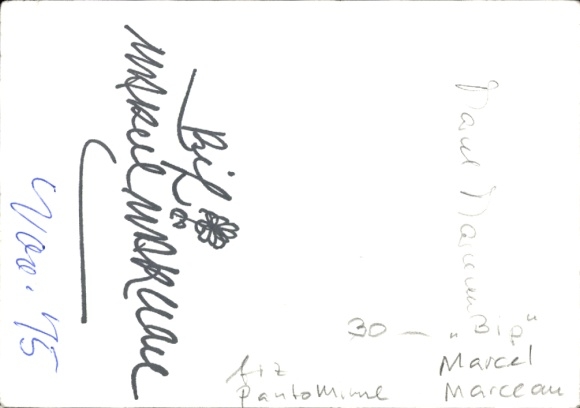 Bip
Marcel Marceau
Nov. '75
Marcel Marceau
30 — „Bip“
frz Marcel
Pantomime Marceau